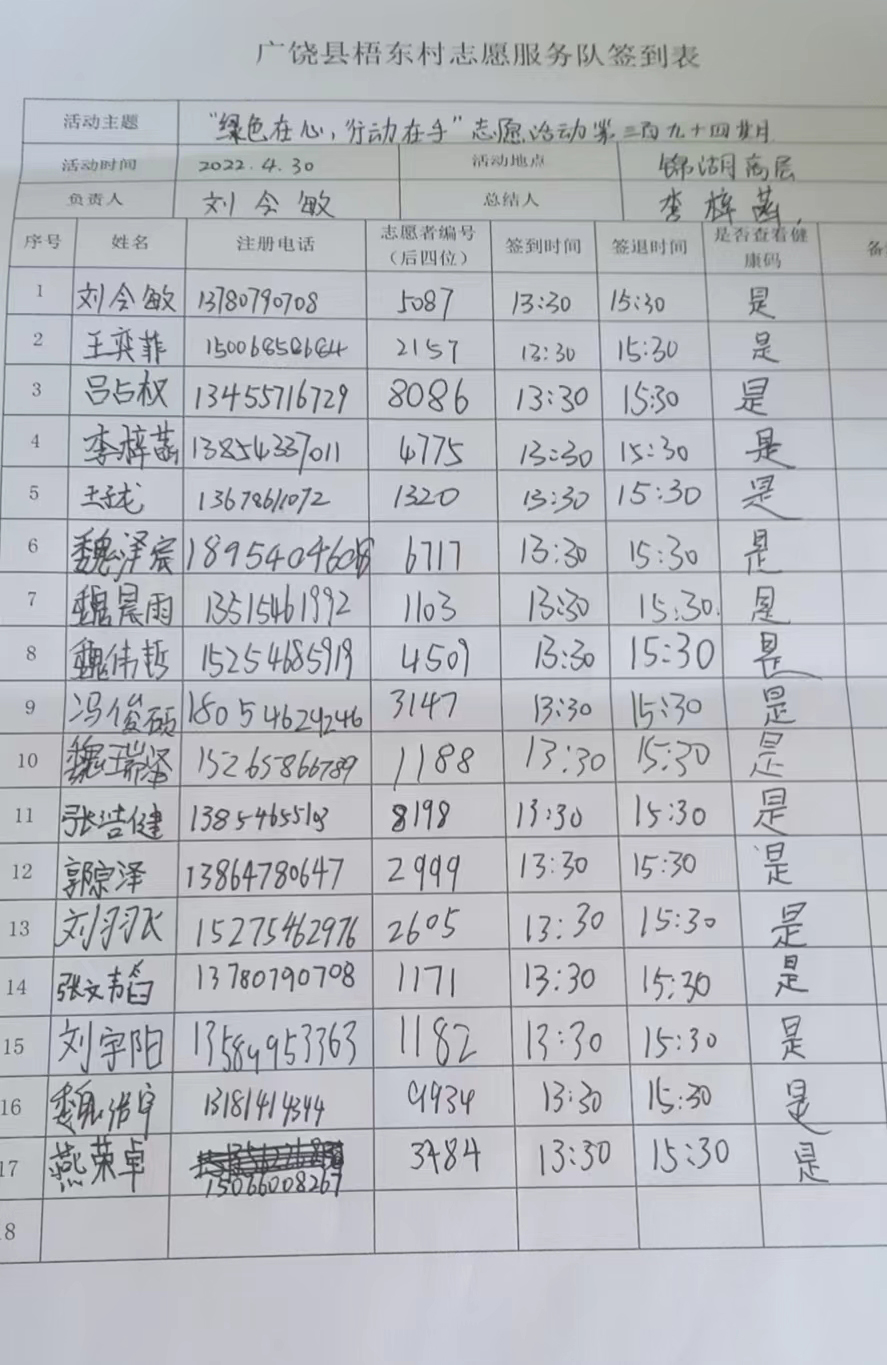 广饶县梧东村志愿服务队签到表
活动主题 “绿色在心，行动在手”志愿活动第三百九十四廿月
活动时间 2022.4.30 活动地点 锦湖高层
负责人 刘会敏 总结人 李梓菡
序号 姓名 注册电话 志愿者编号（后四位） 签到时间 签退时间 是否查看健康码 备
1 刘会敏 13780790708 5087 13:30 15:30 是
2 王奕菲 2157 13:30 15:30 是
3 吕占权 13455716729 8086 13:30 15:30 是
4 李梓菡 13854337011 4775 13:30 15:30 是
5 13678611072 1320 13:30 15:30 是
6 魏泽宸 6717 13:30 15:30 是
7 魏晨雨 13515461992 1103 13:30 15:30 是
8 魏伟哲 15254685919 4509 13:30 15:30 是
9 冯俊硕 18054629246 3147 13:30 15:30 是
10 魏瑞泽 15265866789 1188 13:30 15:30 是
11 张浩健 8198 13:30 15:30 是
12 郭宗泽 13864780647 2999 13:30 15:30 是
13 刘羽飞 15275462976 2605 13:30 15:30 是
14 张文韬 13780790708 1171 13:30 15:30 是
15 刘宇阳 13589953363 1182 13:30 15:30 是
16 13181414344 9934 13:30 15:30 是
17 燕荣卓 15066008267 3484 13:30 15:30 是
18